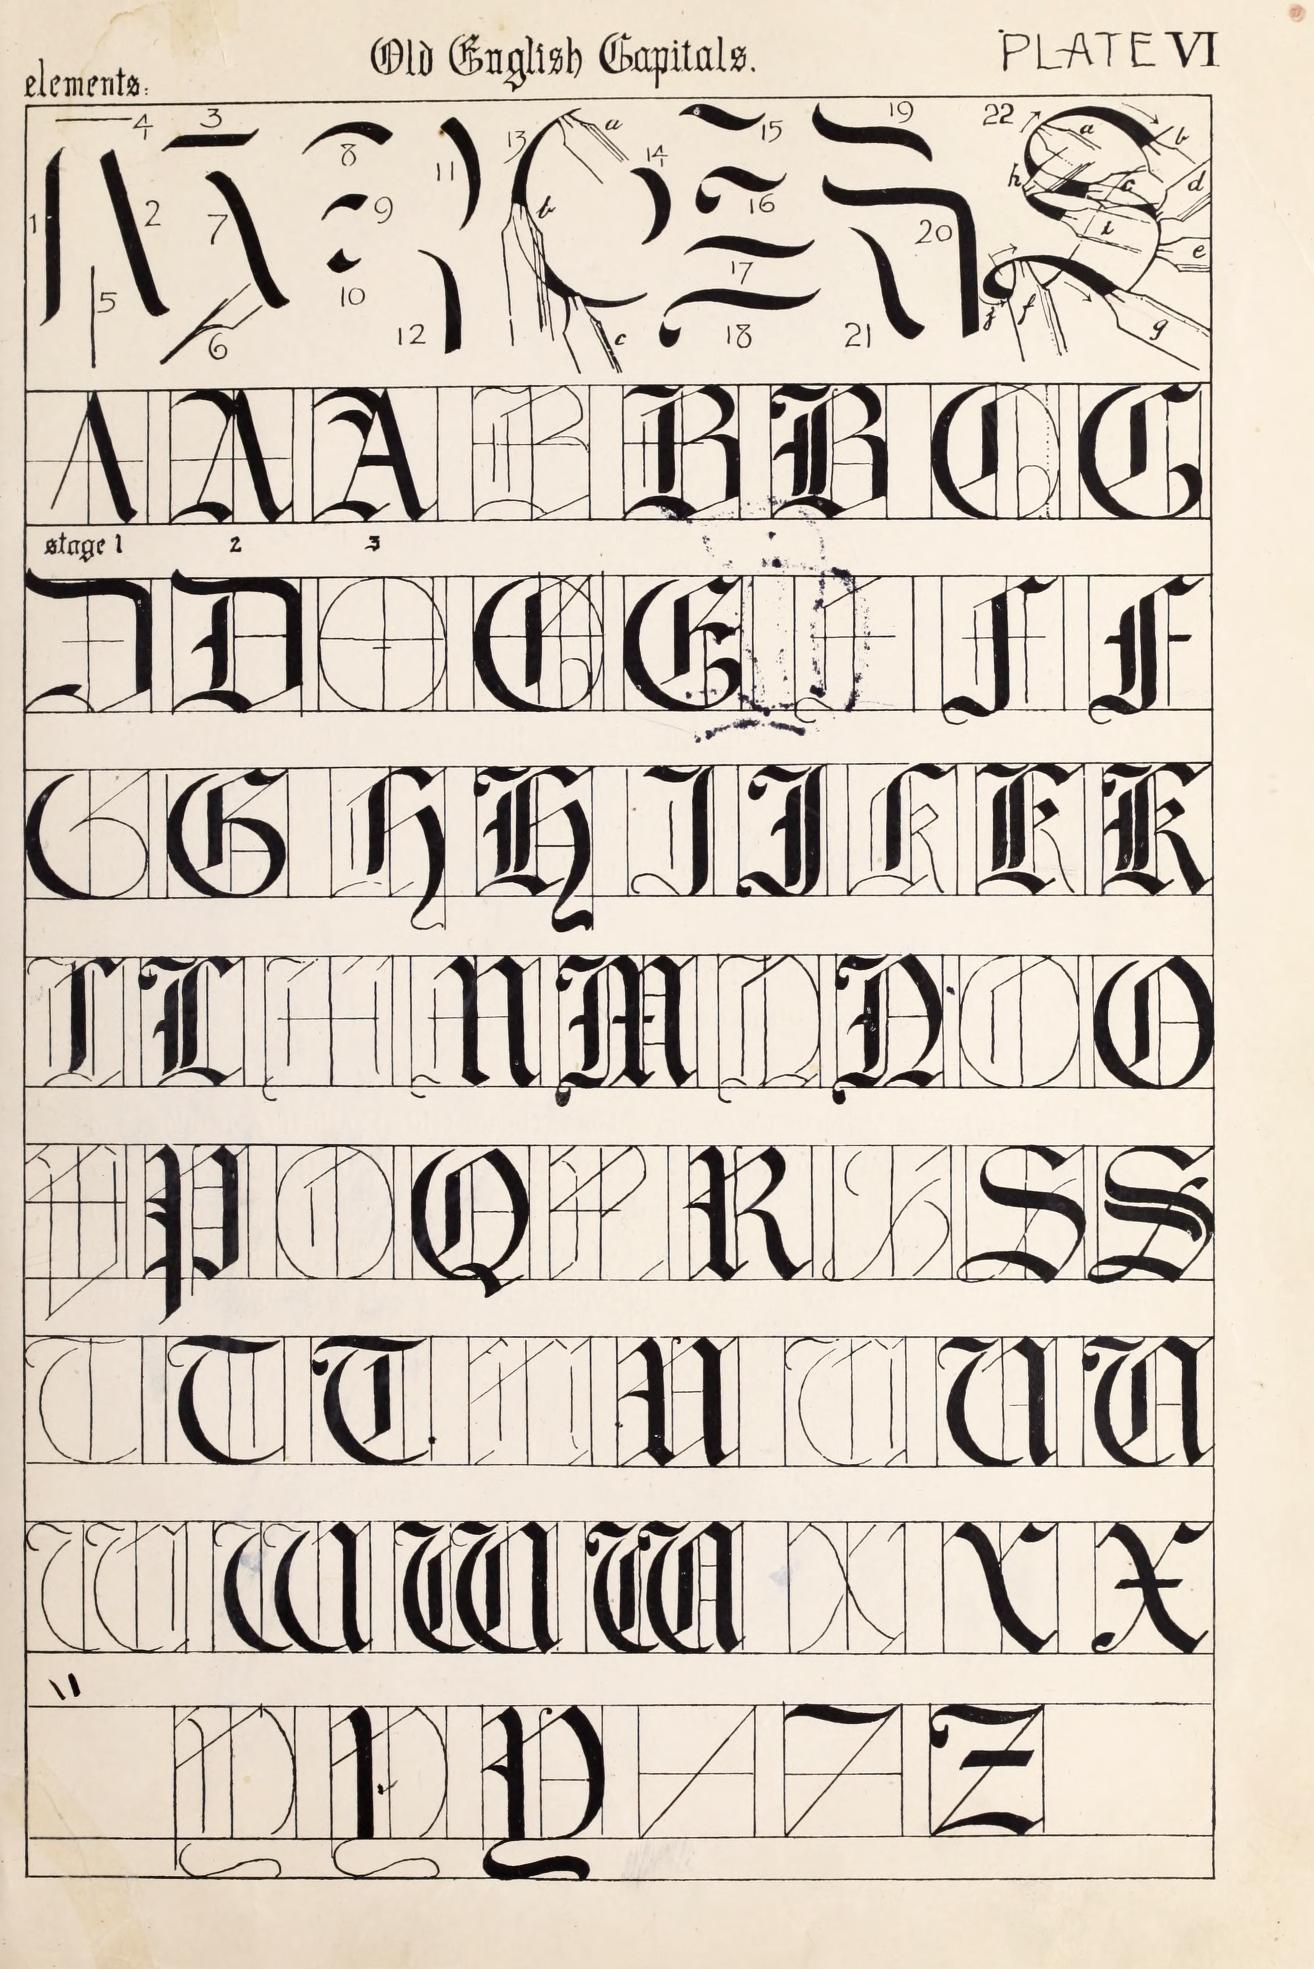 Old English Capitals.
PLATE VI
elements:
1 2 3 4 5 6 7 8 9 10 11 12 13 a b c 14 15 16 17 18 19 20 21 22 a b c d e f g h i j
A A A B B B C C
stage 1 2 3
D D E E E F F F
G G H H I J K K K
L L M M M N N O O
P P Q Q R R S S S
T T T U U U U U
W W W W X X X
Y Y Y Z Z Z